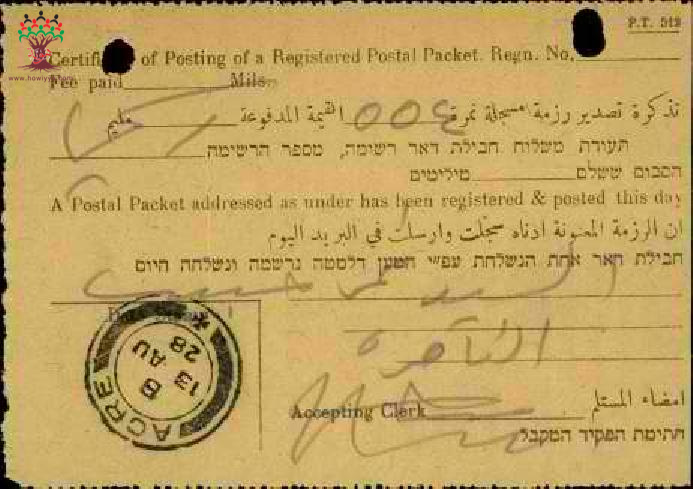 P.T. 512
Certificate of Posting of a Registered Postal Packet. Regn. No.
www.howiyya.com
Fee paid Mils.
تذكرة تصدير رزمة مسجلة نمرة القيمة المدفوعة مليم
תעודת משלוח חבילת דאר רשומה, מספר הרשימה
הסכום ששלם מילימים
A Postal Packet addressed as under has been registered & posted this day
ان الرزمة المعنونة ادناه سجلت وارسلت في البريد اليوم
חבילת דאר אחת הנשלחת עפ״י נרשמה ונשלחה היום
السيد
الناصرة
ACRE
B
13 AU
28
امضاء المستلم
Accepting Clerk
חתימת הפקיד המקבל